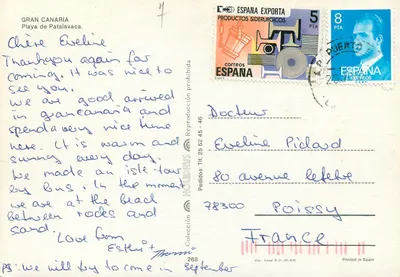 GRAN CANARIA
Playa de Patalavaca.
Chère Eveline
Thank you again for
coming. It was nice to
see you.
We are good arrived
in grancanaria and
spend a very nice time
here. It is warm and
sunny every day.
We made an isle-tour
by bus. In the moment
we are at the beach
between rocks and
sand.
Love from
Esther +
PS: we will try to come in september
Reproducción prohibida
Pedidos Tlf. 25 52 45 - 46
Colección
268
ESPAÑA EXPORTA
PRODUCTOS SIDERURGICOS
5
PTA
correos
ESPAÑA
8
PTA
ESPAÑA
CORREOS
PUERTO
Docteur
Eveline Piclard
80 avenue lefebre
78300 Poissy
France
Printed in Spain